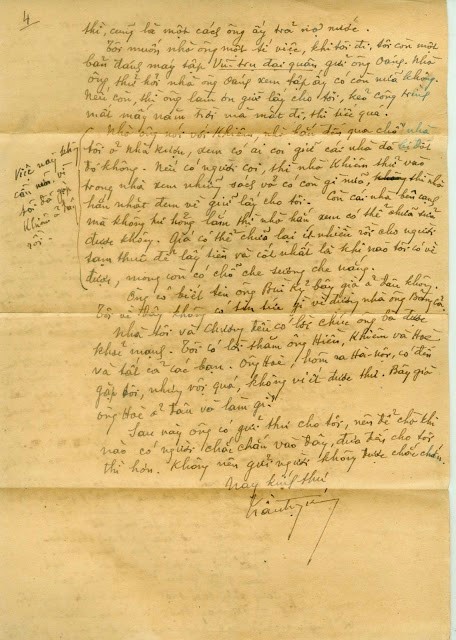 4
thì, cũng là một cách ông ấy trả nợ nước.
Tôi muốn nhờ ông một tí việc, khi tôi đi, tôi còn một
bản đánh máy tập Vũ trụ đại quan gửi ông Oanh. Nhờ
ông thử hỏi nhà ông Oanh xem tập ấy có còn nữa không.
Nếu còn, thì ông làm ơn giữ lấy cho tôi, kẻo công trình
mất mấy năm trời mà mất đi, thì tiếc quá.
Nhờ ông nói với Khiêm, nó hỏi đến qua chỗ nhà
tôi ở Nhà Rượu, xem có ai coi giữ các nhà đã
đó không. Nếu có người coi, thì nhờ Khiêm thử vào
trong nhà xem những sách vở có còn gì nữa, thì nhờ
hắn nhặt đem về giữ lấy cho tôi. Còn cái nhà bên cạnh
mà không hư hỏng lắm thì nhờ hắn xem có thể chữa
được không. Giá có thể chữa lại ít nhiều rồi cho người
ta thuê để lấy tiền và cốt nhất là khi nào tôi có về
được, mong còn có chỗ che sương che nắng.
Việc nay
cần nên vì
tôi đã gặp
Khiêm ở đây
rồi.
Ông có biết tin ông Bùi Kỷ bây giờ ở đâu không.
Tôi về đây không có tin tức gì về đường nhà ông
Nhà tôi và Chương đều có lời chúc ông bà được
khoẻ mạnh. Tôi có lời thăm ông Hiên, Khiêm và Hoè
và tất cả các bạn. Ông Hoè hôm ra Hà-nội, có đến
gặp tôi, nhưng vội quá, không viết được thư. Bây giờ
ông Hoè ở đâu và làm gì?
Sau này ông có gửi thư cho tôi, nên để chờ khi
nào có người chắc chắn vào đây, đưa đến cho tôi
thì hơn. Không nên gửi người không được chắc chắn.
Nay kính thư